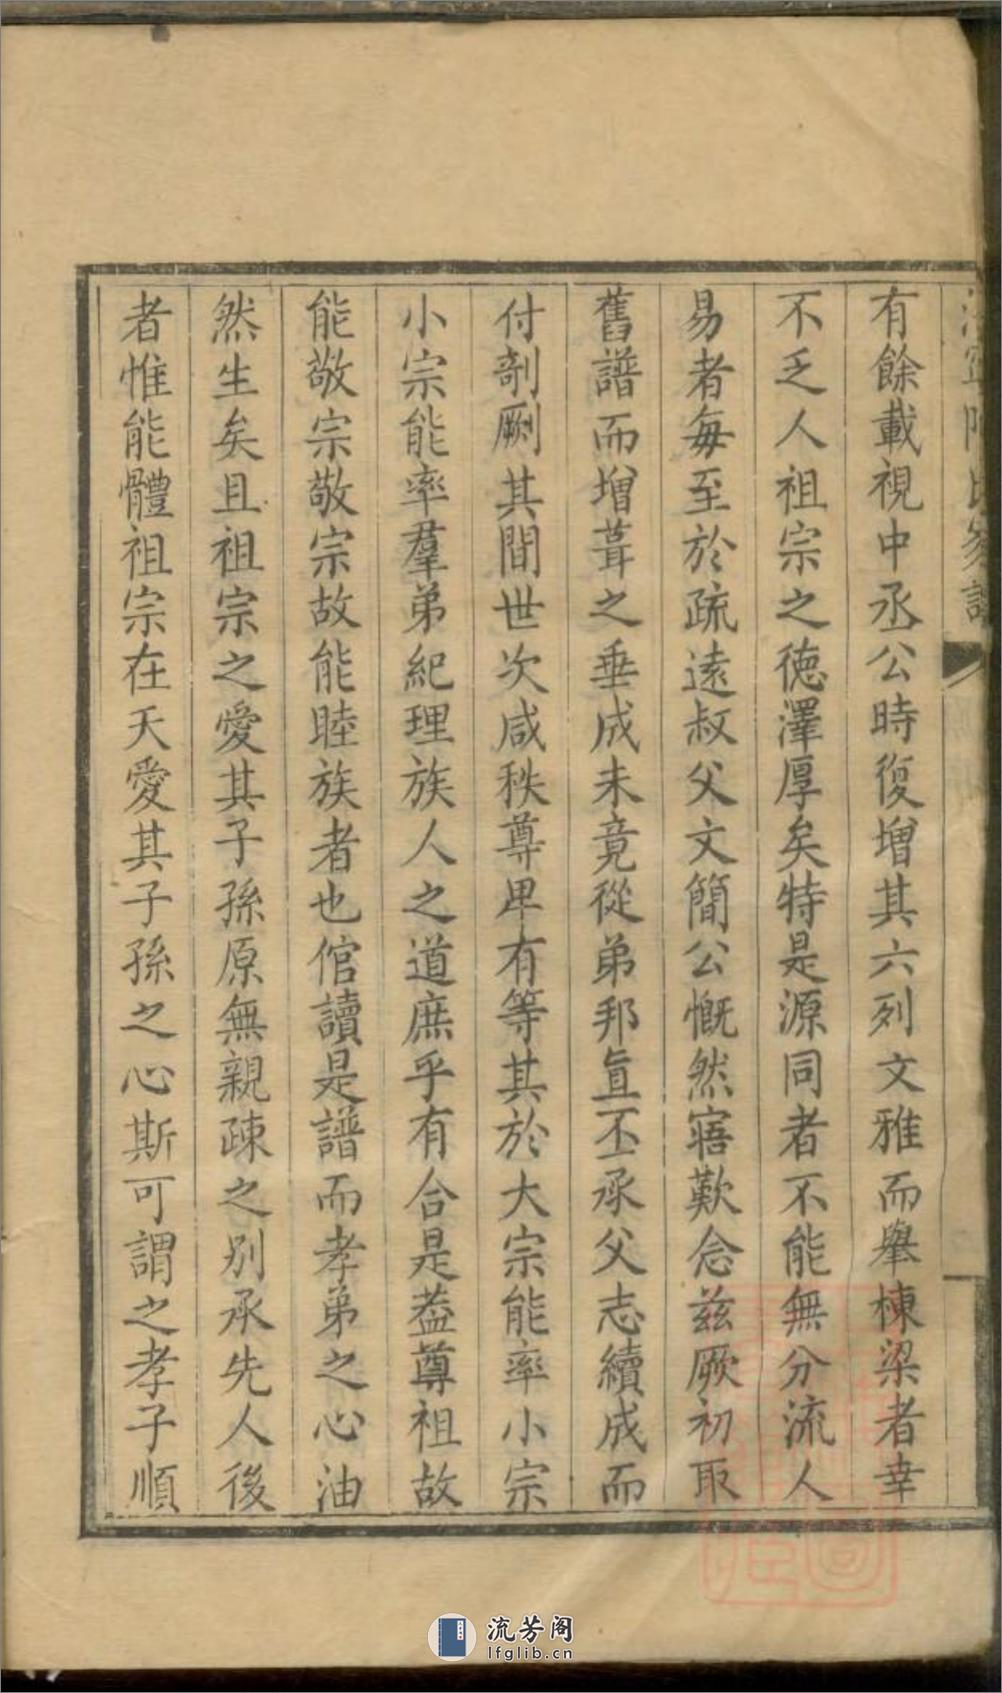 有餘載視中丞公時復增其六列文雅而舉棟梁者幸
不乏人祖宗之德澤厚矣特是源同者不能無分流人
易者每至於疏遠叔父文簡公慨然寤歎念茲厥初取
舊譜而增葺之垂成未竟從弟邦直丕承父志續成而
付剞劂其間世次咸秩尊卑有等其於大宗能率小宗
小宗能率羣弟紀理族人之道庶乎有合是葢尊祖故
能敬宗敬宗故能睦族者也倌讀是譜而孝弟之心油
然生矣且祖宗之愛其子孫原無親疎之别承先人後
者惟能體祖宗在天愛其子孫之心斯可謂之孝子順
流芳阁
lfglib.cn